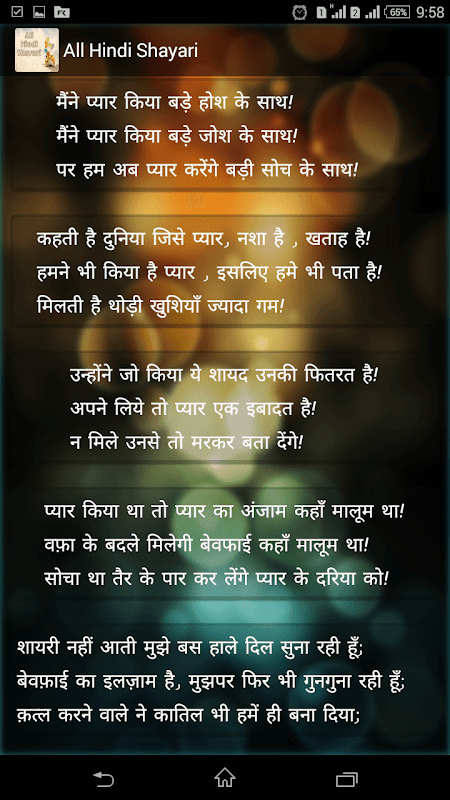 FK 1 H 2 65% 9:58
All Hindi Shayari All Hindi Shayari
मैंने प्यार किया बड़े होश के साथ!
मैंने प्यार किया बड़े जोश के साथ!
पर हम अब प्यार करेंगे बड़ी सोच के साथ!
कहती है दुनिया जिसे प्यार, नशा है , खताह है!
हमने भी किया है प्यार , इसलिए हमे भी पता है!
मिलती है थोड़ी खुशियाँ ज्यादा गम!
उन्होंने जो किया ये शायद उनकी फितरत है!
अपने लिये तो प्यार एक इबादत है!
न मिले उनसे तो मरकर बता देंगे!
प्यार किया था तो प्यार का अंजाम कहाँ मालूम था!
वफ़ा के बदले मिलेगी बेवफाई कहाँ मालूम था!
सोचा था तैर के पार कर लेंगे प्यार के दरिया को!
शायरी नहीं आती मुझे बस हाले दिल सुना रही हूँ;
बेवफ़ाई का इलज़ाम है, मुझपर फिर भी गुनगुना रही हूँ;
क़त्ल करने वाले ने कातिल भी हमें ही बना दिया;